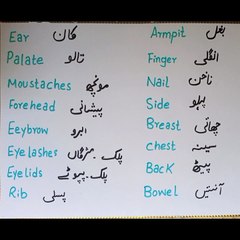 Ear کان
Palate تالو
Moustaches مونچھ
Forehead پیشانی
Eeybrow ابرو
Eyelashes پلک۔مژگاں
Eyelids پلک۔پپوٹے
Rib پسلی
Armpit بغل
Finger انگلی
Nail ناخن
Side پہلو
Breast چھاتی
chest سینہ
Back پیٹھ
Bowel آنتیں